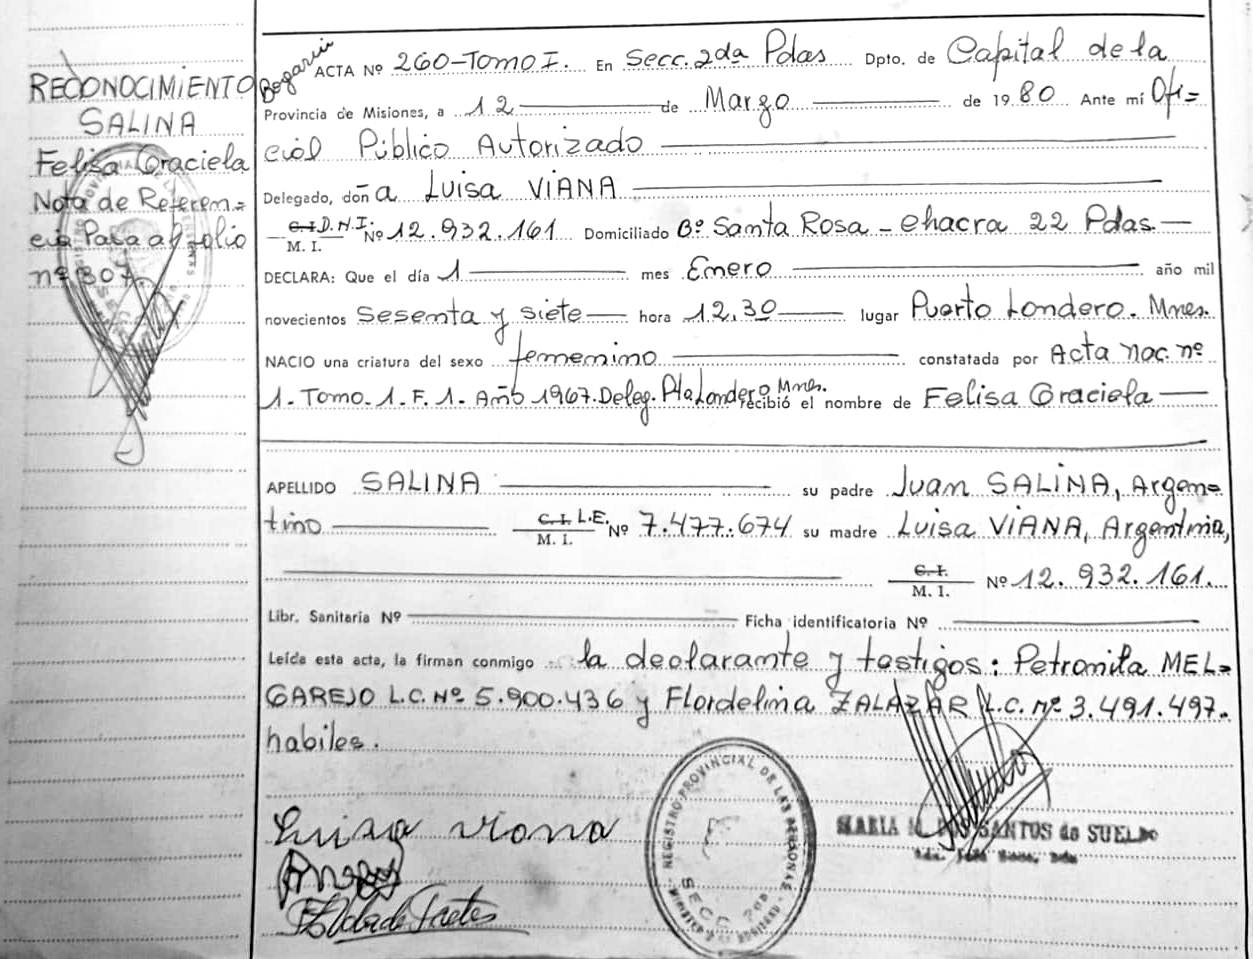 RECONOCIMIENTO
SALINA
Felisa Graciela
Nota de Referen=
cia Para al folio
nº 307.
Bogarin
ACTA Nº 260-Tomo I. En Secc. 2da Pdas Dpto. de Capital de la
Provincia de Misiones, a 12 de Marzo de 1980 Ante mí Ofi=
cial Público Autorizado
Delegado, doña Luisa VIANA
C.I. D.N.I. Nº 12.932.161 Domiciliado Bº Santa Rosa - chacra 22 Pdas.
M. I.
DECLARA: Que el día 1 mes Enero año mil
novecientos sesenta y siete hora 12.30 lugar Puerto Londero. Mnes.
NACIO una criatura del sexo femenino constatada por Acta nac. nº
1. Tomo. 1. F. 1. Año 1967. Deleg. Pto Londero Mnes. recibió el nombre de Felisa Graciela
APELLIDO SALINA su padre Juan SALINA, Argen=
tino C.I. L.E. Nº 7.477.674 su madre Luisa VIANA, Argentina,
M. I.
C.I. Nº 12.932.161.
M. I.
Libr. Sanitaria Nº Ficha identificatoria Nº
Leída esta acta, la firman conmigo la declarante y testigos: Petronila MEL=
GAREJO L.C. Nº 5.900.436 y Flordelina ZALAZAR L.C. nº 3.491.497.
habiles.
Luisa Viana
REGISTRO PROVINCIAL DE LAS PERSONAS
SECC 2da
MARIA DOS SANTOS de SUELDO